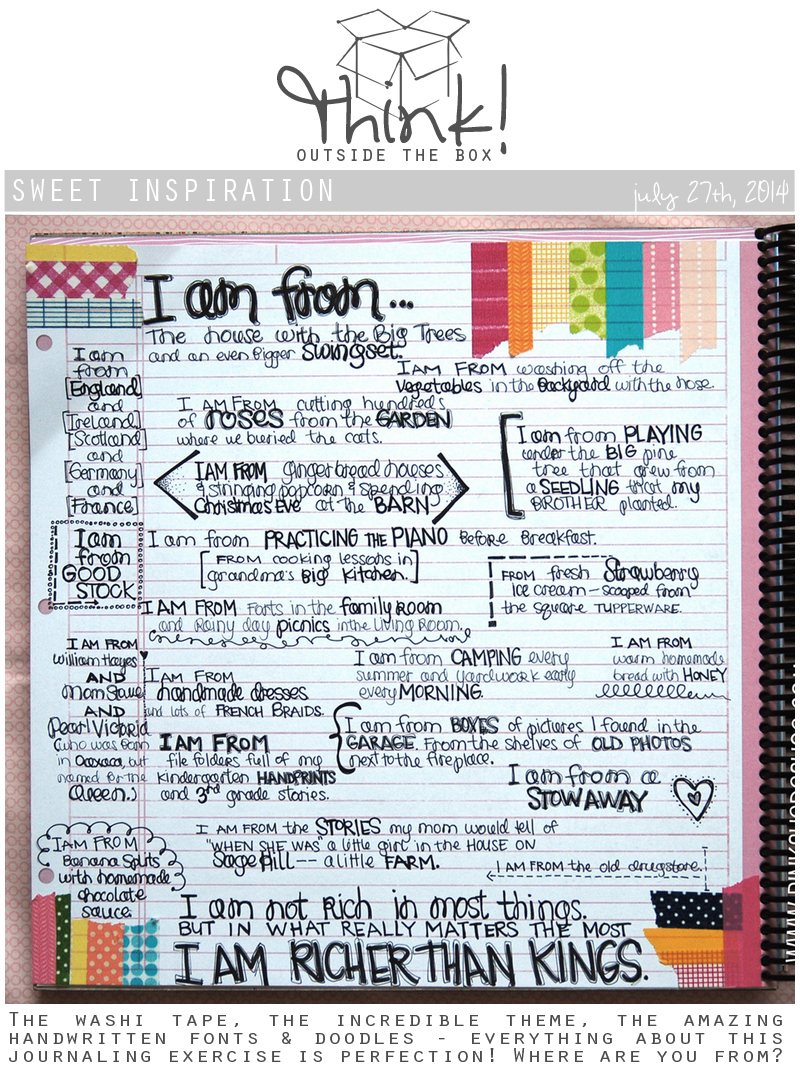 Think!
OUTSIDE THE BOX
SWEET INSPIRATION
july 27th, 2014
I am from...
The house with the Big Trees
and an even Bigger Swingset.
I am
from
[England]
and
[Ireland]
[Scotland]
and
[Germany]
and
[France]
I am
from
GOOD
STOCK
I AM FROM
William Hayes
AND
Mom Steve
AND
Pearl Victoria
(who was born
in Oaxaca, but
named for the
Queen.)
I AM FROM
Banana Splits
with homemade
chocolate
sauce.
I AM FROM washing off the
vegetables in the Backyard with the hose.
I AM FROM cutting hundreds
of roses from the GARDEN
where we buried the cats.
I am from PLAYING
under the BIG pine
tree that grew from
a SEEDLING that my
BROTHER planted.
I AM FROM gingerbread houses
& stringing popcorn & spending
Christmas Eve at the BARN
I am from PRACTICING the PIANO Before Breakfast.
[FROM cooking lessons in
grandma's Big Kitchen.]
FROM fresh Strawberry
ice cream - scooped from
the square TUPPERWARE.
I AM FROM Forts in the family room
and Rainy day picnics in the Living Room.
I am from CAMPING every
summer and yardwork early
every MORNING.
I AM FROM
warm homemade
bread with HONEY
I AM FROM
handmade dresses
and lots of FRENCH BRAIDS.
I am from BOXES of pictures I found in the
GARAGE. From the shelves of OLD PHOTOS
next to the fireplace.
I AM FROM
file folders full of my
Kindergarten HANDPRINTS
and 3rd grade stories.
I am from a
STOWAWAY
I AM FROM the STORIES my mom would tell of
"WHEN SHE WAS a little girl" in the HOUSE ON
Sage Hill -- a little FARM.
I AM FROM the old drugstore.
I am not Rich in most things.
BUT IN WHAT REALLY MATTERS THE MOST
I AM RICHER THAN KINGS.
THE WASHI TAPE, THE INCREDIBLE THEME, THE AMAZING
HANDWRITTEN FONTS & DOODLES - EVERYTHING ABOUT THIS
JOURNALING EXERCISE IS PERFECTION! WHERE ARE YOU FROM?